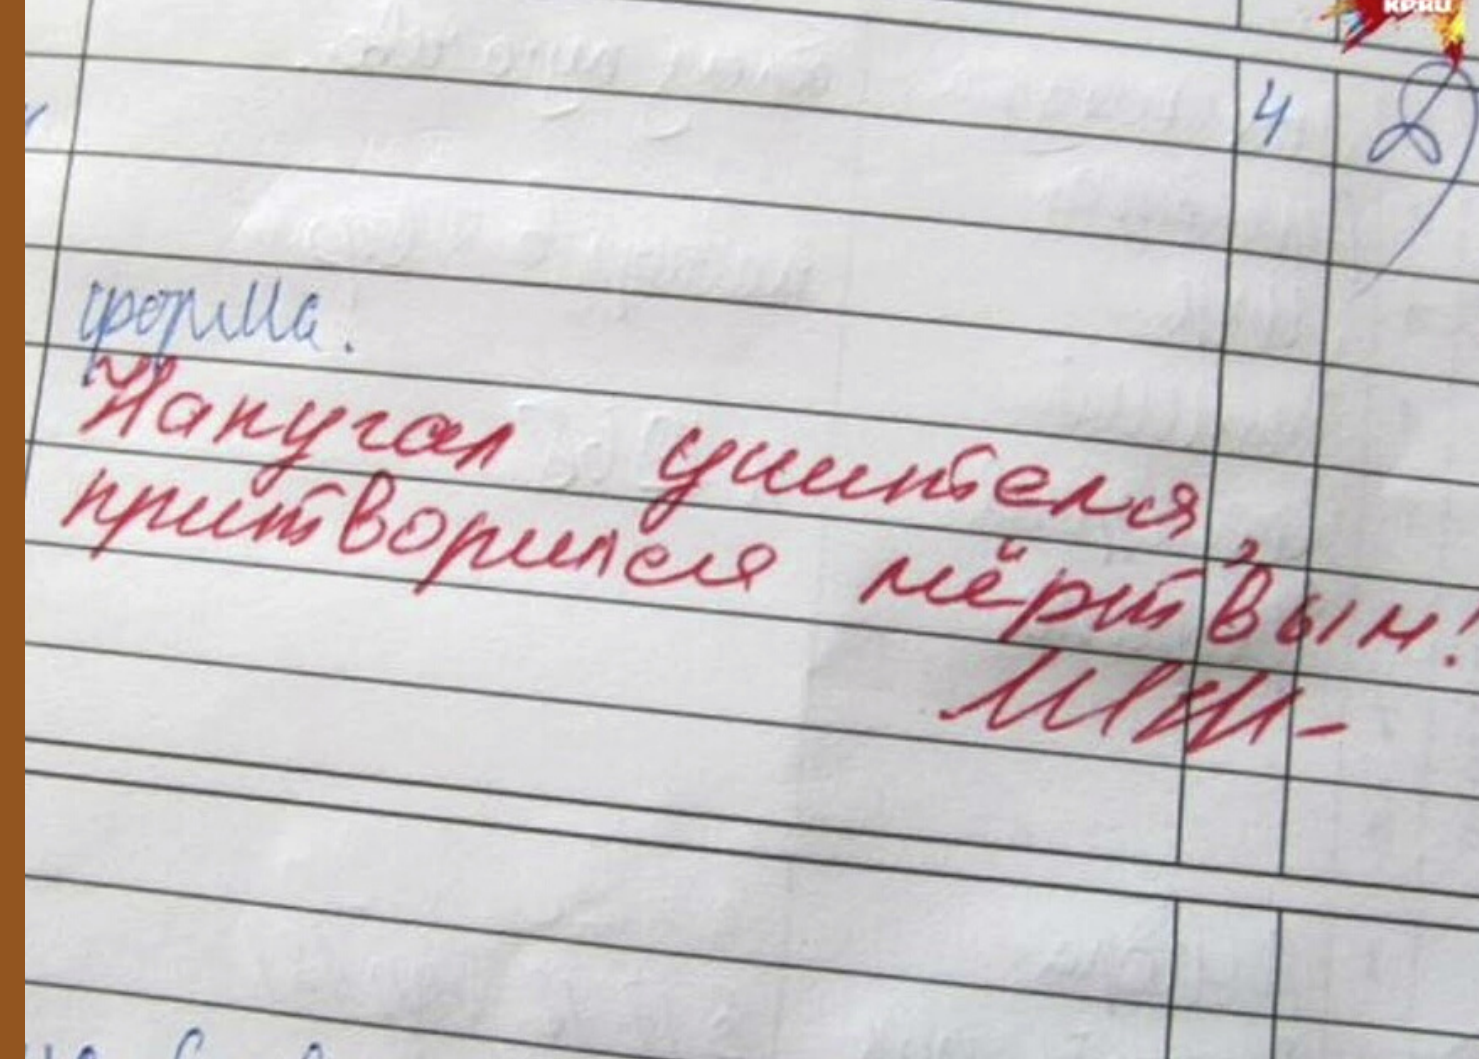 KP.RU
4
форма.
Напугал учителя,
притворился мёртвым!